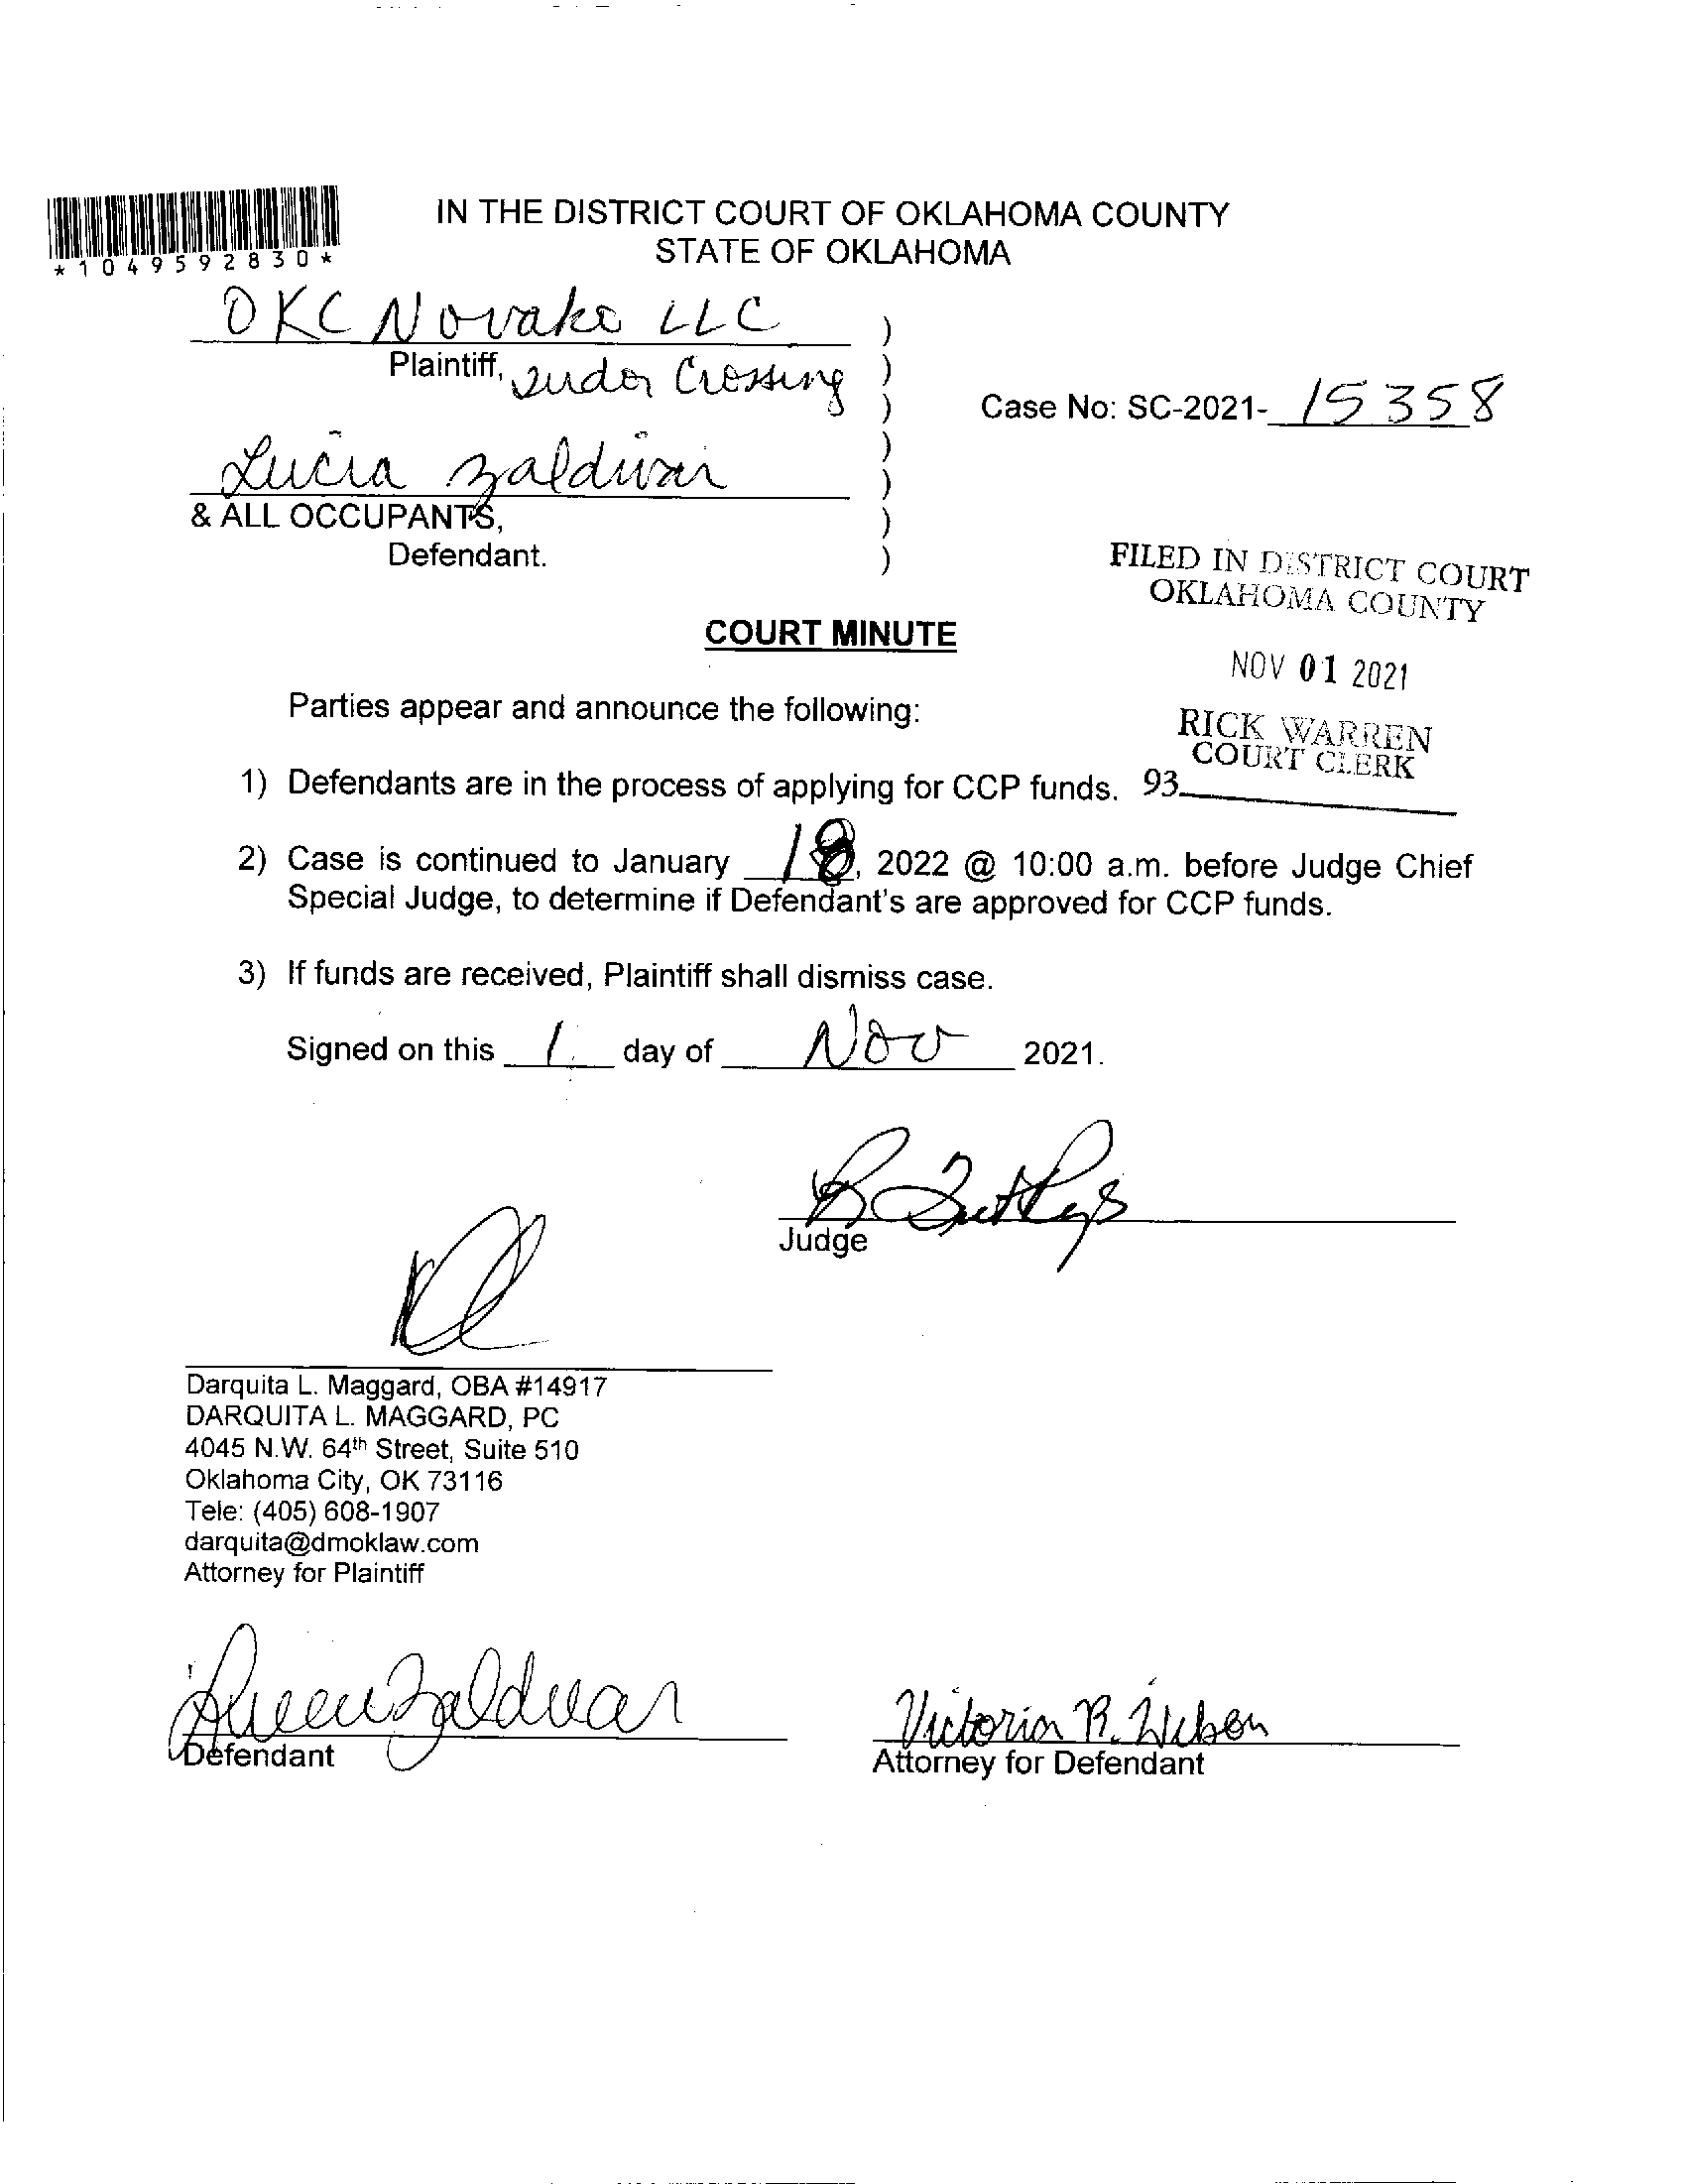 IN THE DISTRICT COURT OF OKLAHOMA COUNTY
STATE OF OKLAHOMA
*1049592830*
OKC Novako LLC )
Plaintiff, Crossing )
)
Case No: SC-2021- 15358
Lucia Zaldivar )
)
& ALL OCCUPANTS, )
Defendant. )
FILED IN DISTRICT COURT
OKLAHOMA COUNTY
NOV 01 2021
RICK WARREN
COURT CLERK
93
COURT MINUTE
Parties appear and announce the following:
1) Defendants are in the process of applying for CCP funds.
2) Case is continued to January 18, 2022 @ 10:00 a.m. before Judge Chief
Special Judge, to determine if Defendant's are approved for CCP funds.
3) If funds are received, Plaintiff shall dismiss case.
Signed on this 1 day of Nov 2021.
Judge
Darquita L. Maggard, OBA #14917
DARQUITA L. MAGGARD, PC
4045 N.W. 64th Street, Suite 510
Oklahoma City, OK 73116
Tele: (405) 608-1907
darquita@dmoklaw.com
Attorney for Plaintiff
Zaldivar
Defendant
Victoria R.
Attorney for Defendant